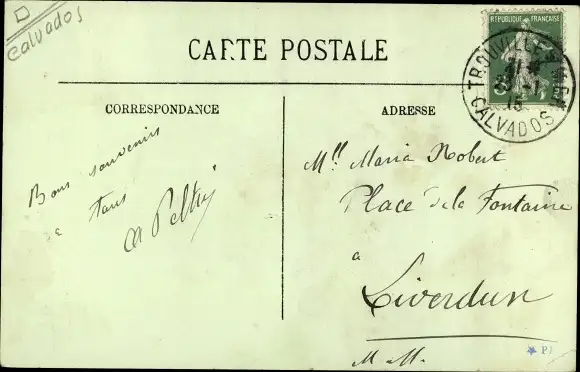 D
Calvados
CARTE POSTALE
RÉPUBLIQUE FRANÇAISE
TROUVILLE
CALVADOS
15
CORRESPONDANCE
ADRESSE
Bons souvenirs
a tous
Mlle Maria Robert
Place de la Fontaine
a
Liverdun
M. M.